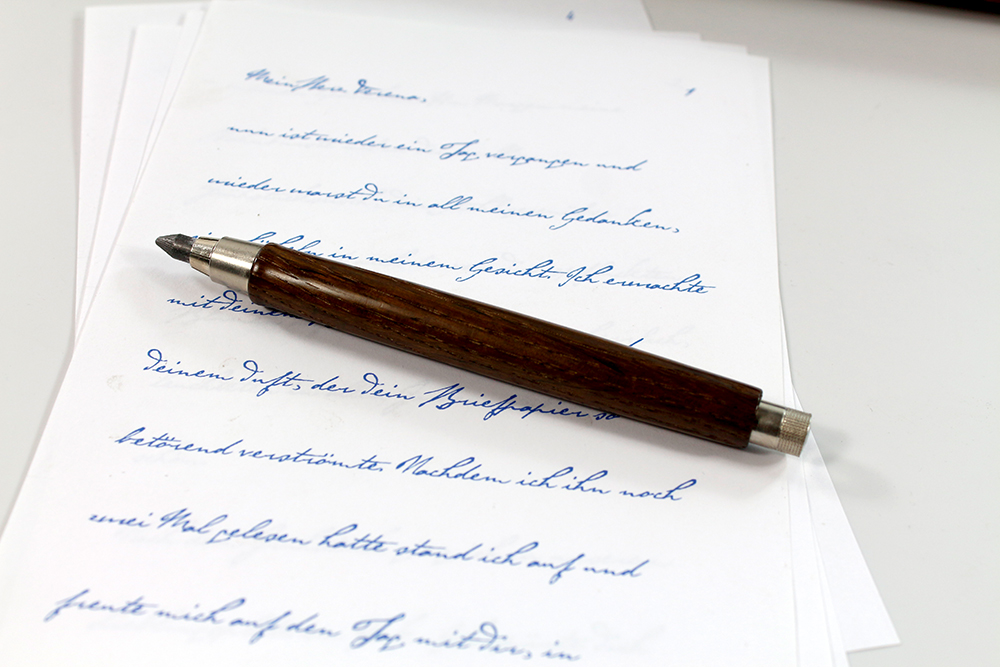 4
Mein Verena, 1
nun ist wieder ein Tag vergangen und
wieder warst du in all meinen Gedanken,
in meinem Gesicht. Ich erwachte
mit deinem
deinem Duft, der dein Briefpapier so
betörend verströmte. Nachdem ich ihn noch
zwei Mal gelesen hatte stand ich auf und
freute mich auf den Tag mit dir, in